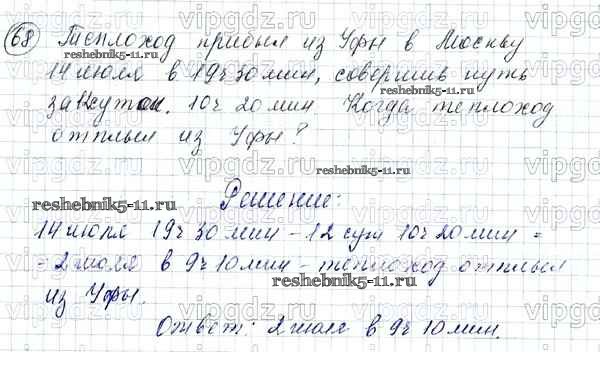 68 Теплоход прибыл из Уфы в Москву
14 июля в 19ч 30 мин, совершив путь
за 12 суток. 10ч 20 мин Когда теплоход
отплыл из Уфы?
Решение:
14 июля 19ч 30 мин - 12 сут 10ч 20 мин =
= 2 июля в 9ч 10 мин - теплоход отплыл
из Уфы.
Ответ: 2 июля в 9ч 10 мин.
vipgdz.ru
reshebnik5-11.ru